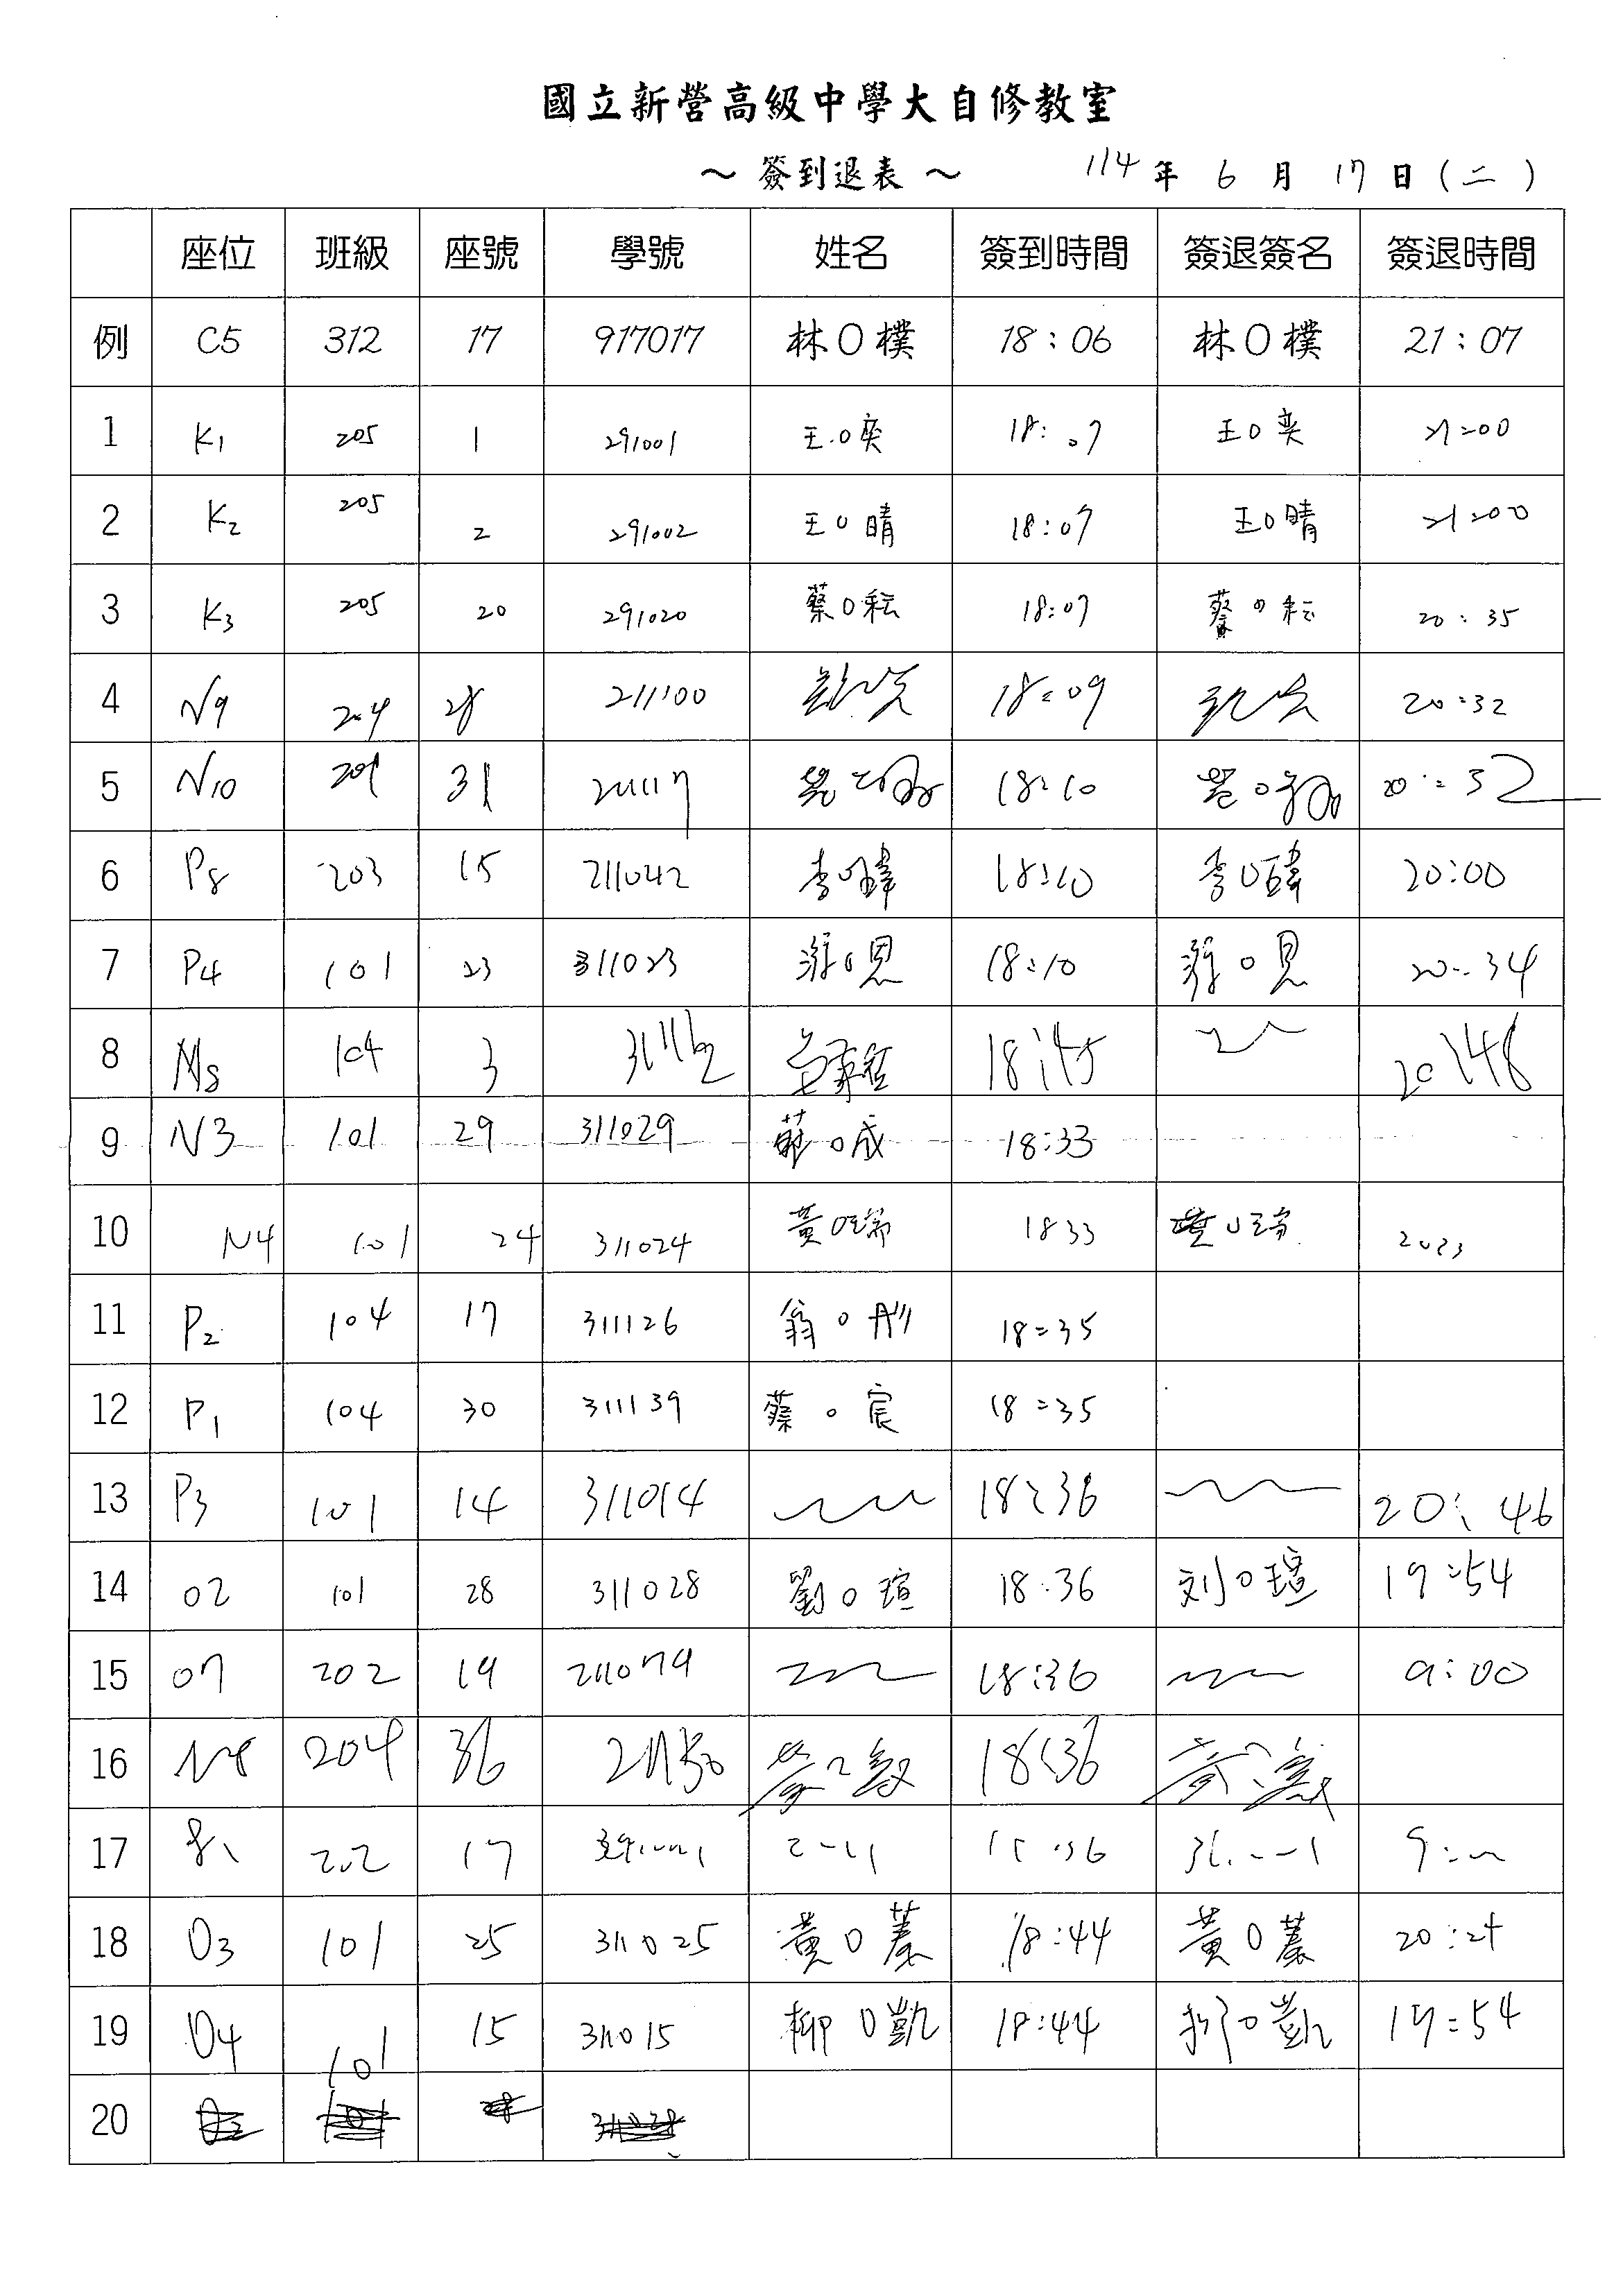 國立新營高級中學大自修教室
～ 簽到退表 ～ 114 年 6 月 17 日 (二)
座位 班級 座號 學號 姓名 簽到時間 簽退簽名 簽退時間
例 C5 312 17 917017 林O樸 18:06 林O樸 21:07
1 K1 205 1 291001 王O奕 18:07 王O奕 21:00
2 K2 205 2 291002 王O晴 18:07 王O晴 21:00
3 K3 205 20 291020 蔡O耘 18:07 蔡O耘 20:35
4 N9 204 28 211100 18:09 20:32
5 N10 31 211117 18:10 20:32
6 P8 203 15 211042 李O暐 18:10 李O暐 20:00
7 P4 101 23 311023 游O恩 18:10 游O恩 20:34
8 M8 104 3 18:45 20:48
9 N3 101 29 311029 蘇O成 18:33
10 N4 101 24 311024 黃O瑞 1833 黃O瑞 2033
11 P2 104 17 311126 翁O彤 18:35
12 P1 104 30 311139 蔡O宸 18:35
13 P3 101 14 311014 18:36 20:46
14 O2 101 28 311028 劉O瑄 18:36 刘O瑄 19:54
15 O7 202 19 211079 18:36 9:00
16 N8 204 36 18:36
17 202 17
18 O3 101 25 311025 黃O蓁 18:44 黃O蓁 20:24
19 O4 101 15 311015 柳O凱 18:44 柳O凱 19:54
20